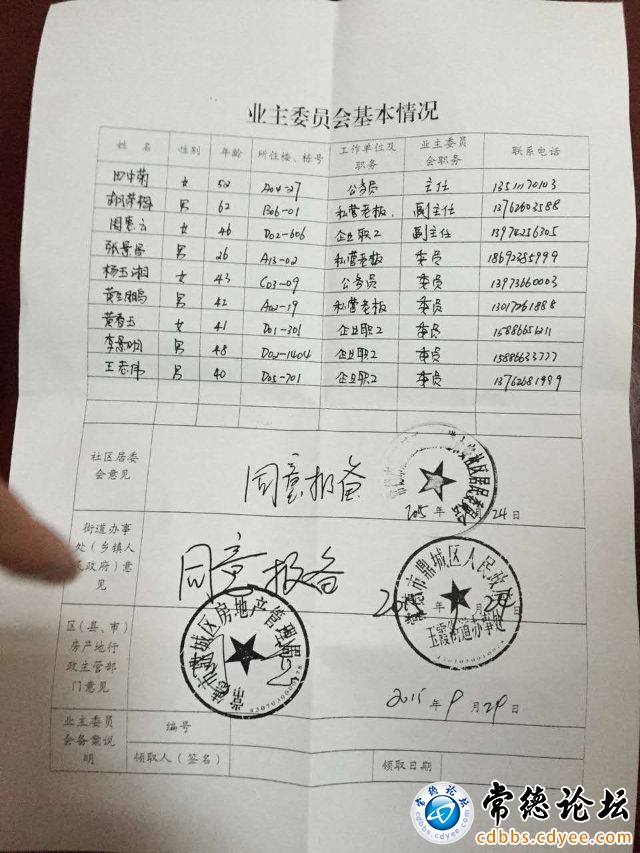 业主委员会基本情况
姓 名 性别 年龄 所住楼、栋号 工作单位及职务 业主委员会职务 联系电话
女 52 A04-27 公务员 主任
男 62 B06-01 私营老板 副主任 13762603588
周惠云 女 46 D02-606 企业职工 副主任 13974256305
张景昌 男 26 A13-02 私营老板 委员 18692285999
杨玉湘 女 43 C03-09 公务员 委员 13973660003
男 42 A02-19 私营老板 委员 13017261888
黄香玉 女 41 D01-301 企业职工 委员
李景明 男 48 D02-1404 企业职工 委员 15886633777
王志伟 男 40 D05-701 企业职工 委员 13762681999
社区居委
会意见
同意报备
2015 年 月 24 日
街道办事
处(乡镇人
民政府)意
见
同意报备
常德市鼎城区人民政府
玉霞街道办事处
2015 年 月 日
区(县、市)
房产地行
政主管部
门意见
常德市鼎城区房地产管理局
2015 年 9 月 29 日
业主委员
会备案说
明
编号
领取人(签名)
领取日期
常德论坛
cdbbs.cdyee.com